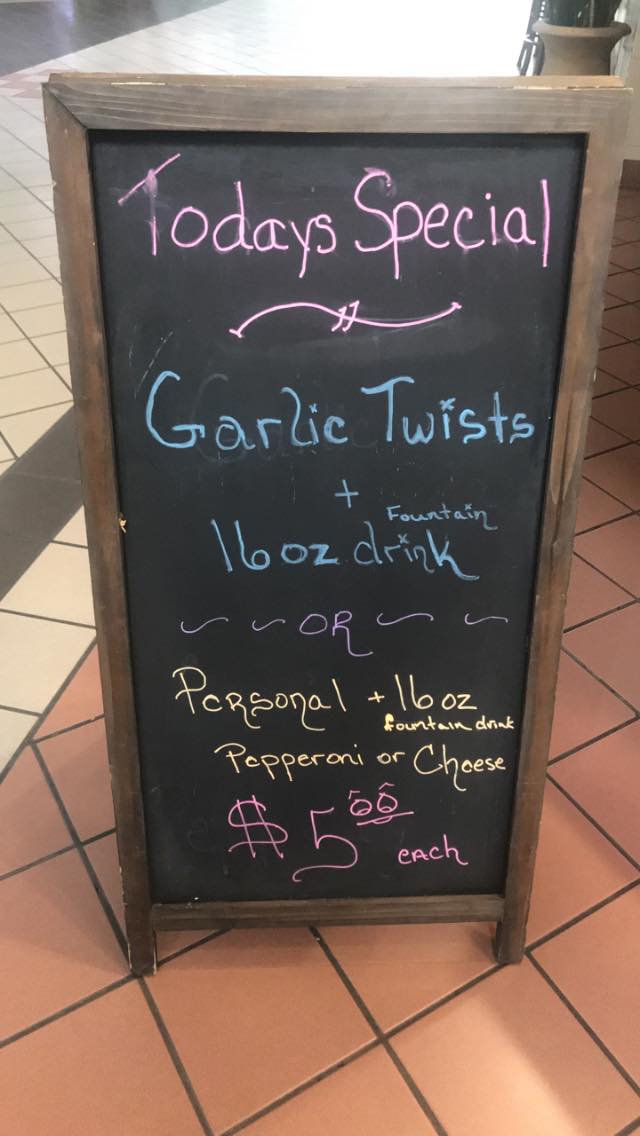 Todays Special
Garlic Twists
+
Fountain
16 oz drink
OR
Personal + 16 oz
fountain drink
Pepperoni or Cheese
$5.00
each